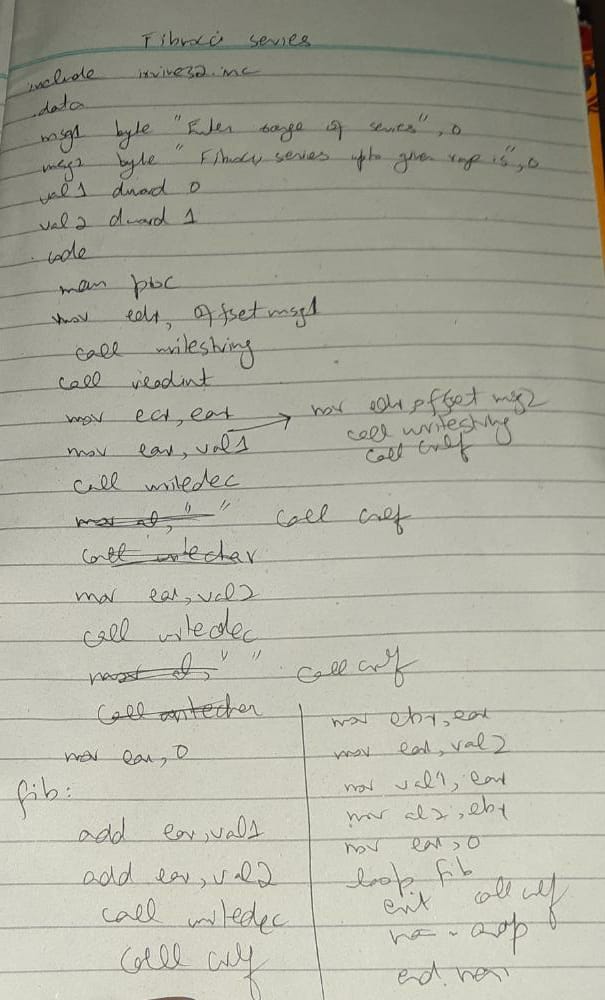 Fibnacci series
include irvine32.inc
.data
msg1 byte "Enter range of series", 0
msg2 byte "Fibnacci series upto given range is", 0
val1 dword 0
val2 dword 1
.code
main proc
mov edx, offset msg1
call writestring
call readint
mov ecx, eax
mov edx, offset msg2
call writestring
call crlf
mov eax, val1
call writedec
mov al, " "
call crlf
call writechar
mov eax, val2
call writedec
mov al, " "
call crlf
call writechar
mov eax, 0
fib:
add eax, val1
add eax, val2
call writedec
call crlf
mov ebx, eax
mov eax, val2
mov val1, eax
mov val2, ebx
mov eax, 0
loop fib
call crlf
exit
main endp
end main